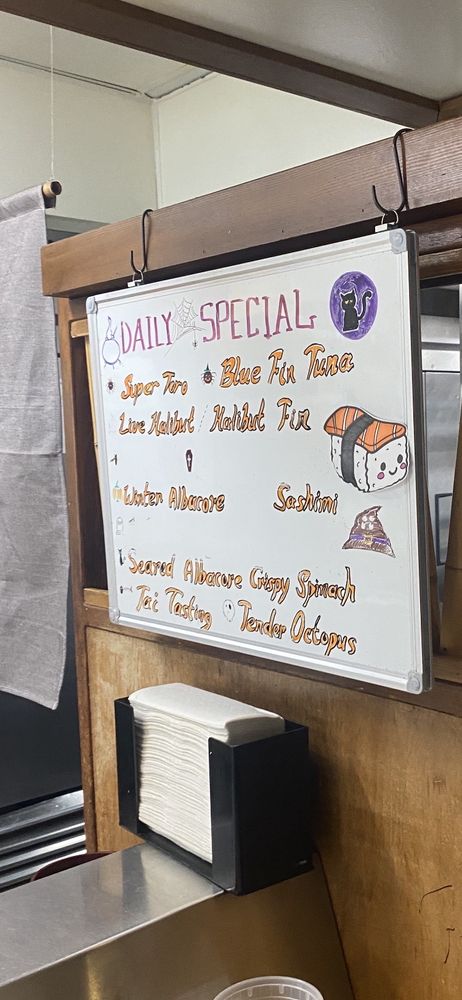 DAILY SPECIAL
Super Toro Blue Fin Tuna
Live Halibut / Halibut Fin
Winter Albacore Sashimi
Seared Albacore Crispy Spinach
Tai Tasting Tender Octopus